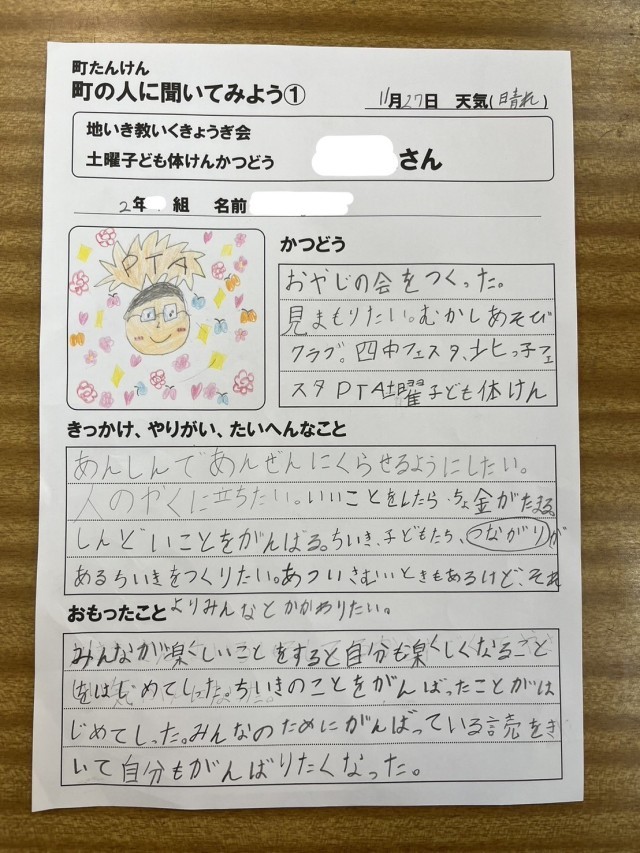 町たんけん
町の人に聞いてみよう①
11月27日 天気(晴れ)
地いき教いくきょうぎ会
土曜子ども体けんかつどう
さん
2年 組 名前
PTA
かつどう
おやじの会をつくった。
見まもりたい。むかしあそび
クラブ。四中フェスタ、北っ子フェ
スタPTA土曜子ども体けん
きっかけ、やりがい、たいへんなこと
あんしんであんぜんにくらせるようにしたい。
人のやくに立ちたい。いいことをしたら、ちょ金がたまる。
しんどいことをがんばる。ちいき、子どもたち、つながりが
あるちいきをつくりたい。あつい、さむいときもあるけど、それ
よりみんなとかかわりたい。
おもったこと
みんなが楽しいことをすると自分も楽しくなること
をはじめてしった。ちいきのことをがんばったことがは
じめてしった。みんなのためにがんばっている話をき
いて自分もがんばりたくなった。